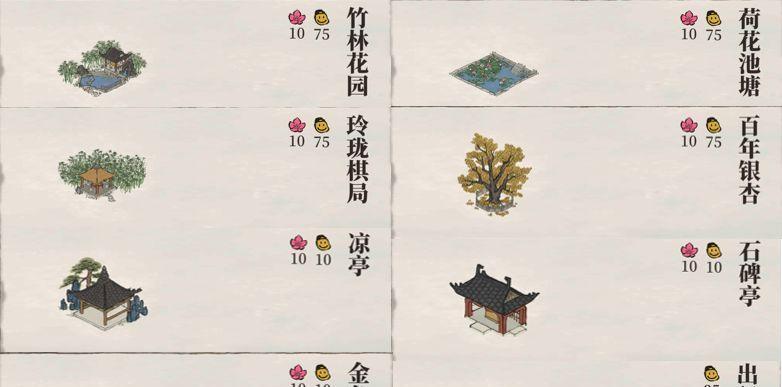 竹林花园
10 75
荷花池塘
10 75
玲珑棋局
10 75
百年银杏
10 75
凉亭
10 10
石碑亭
10 10
金
出